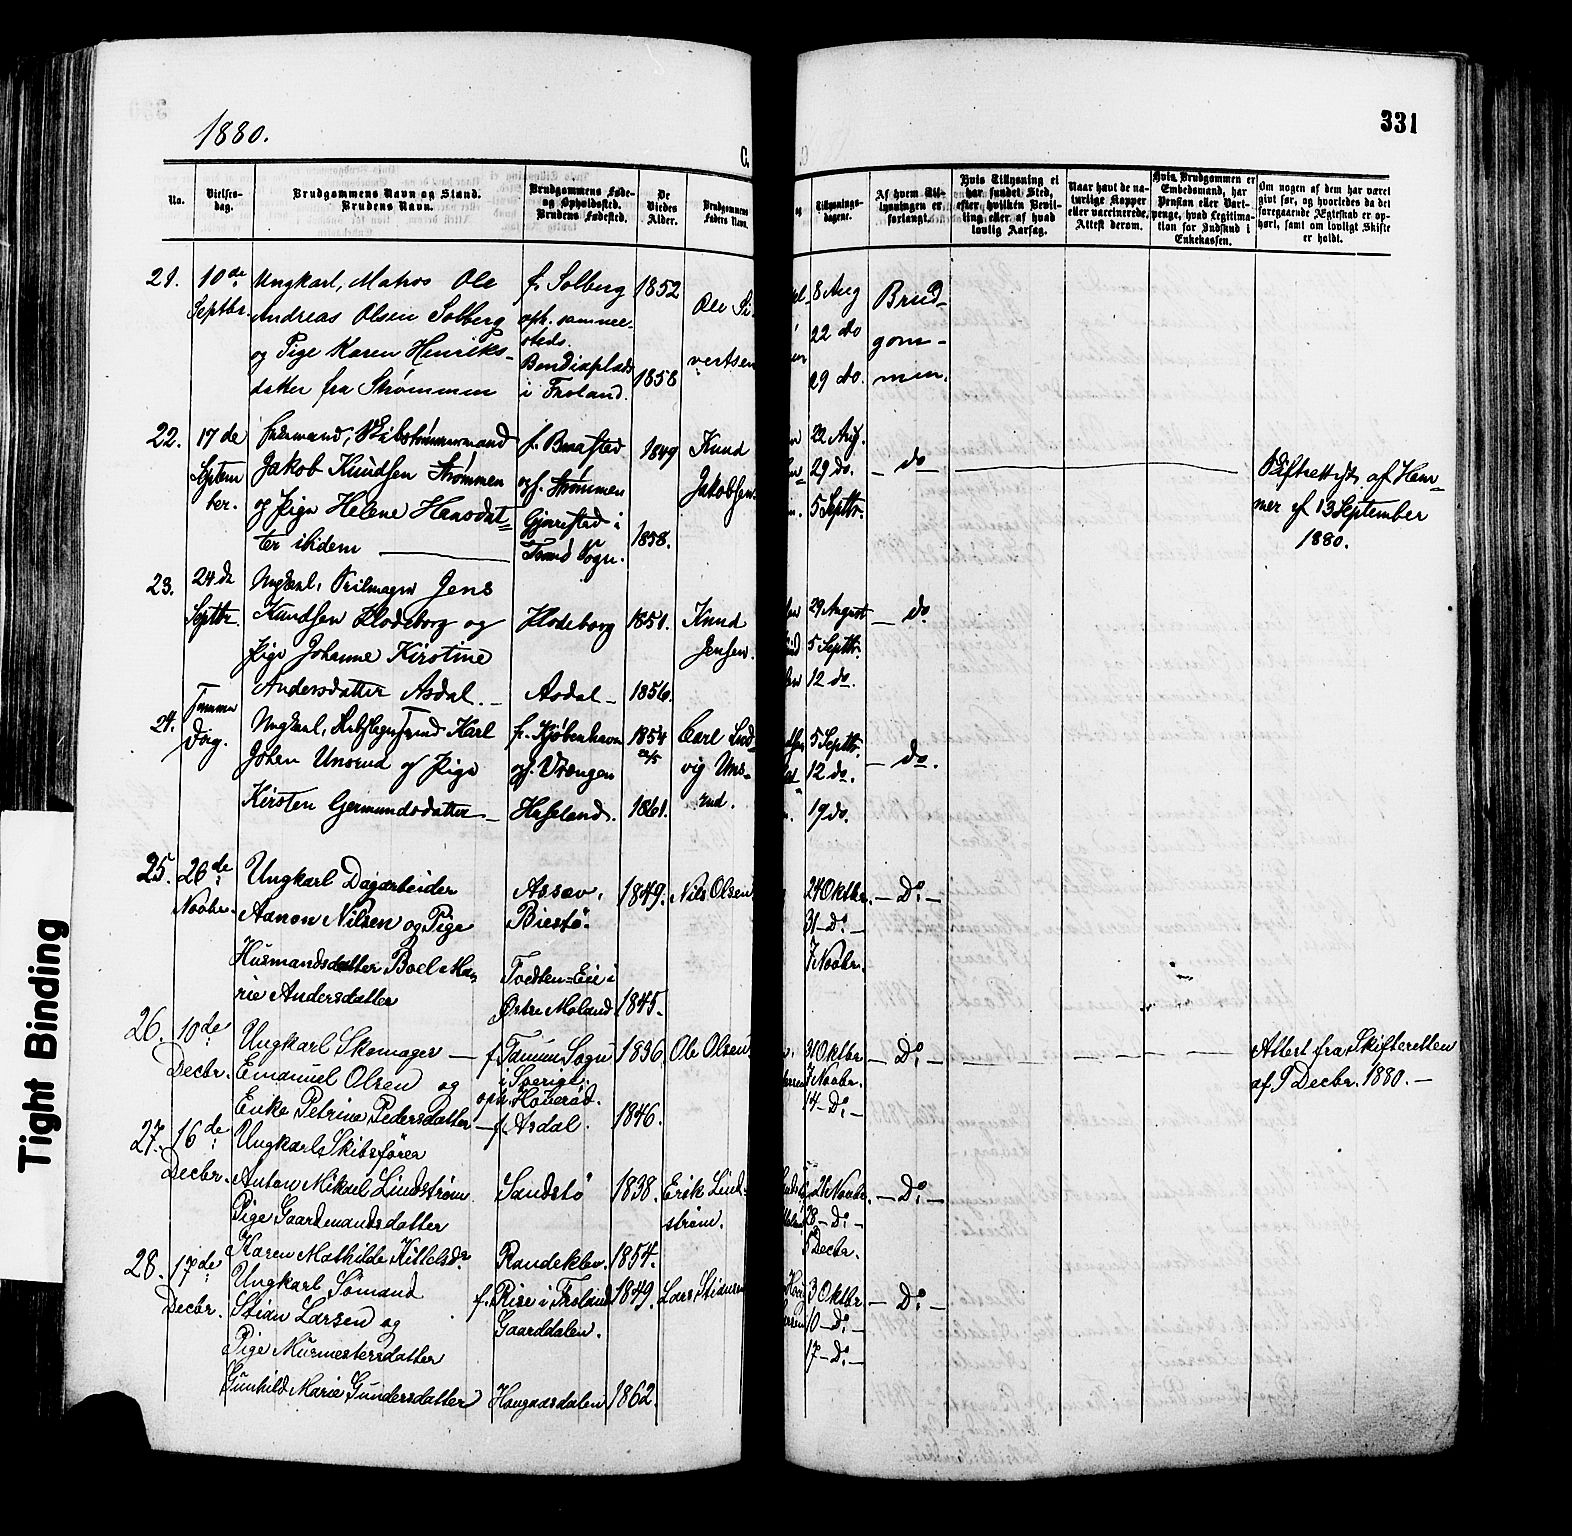 331
1880.
C.
No.
Vielses-
dag.
Brudgommens Navn og Stand.
Brudens Navn.
Brudgommens Føde-
og Opholdssted.
Brudens Fødested.
De
Viedes
Alder.
Brudgommens
Faders Navn.
og
Tillysnings-
dagene.
Af hvem Til-
lysningen er
forlangt.
Hvis Tillysning ei
har fundet Sted,
efter hvilken Bevil-
ling eller af hvad
lovlig Aarsag.
Naar havt de na-
turlige Kopper
eller vaccinerede.
Attest derom.
Hvis Brudgommen er
Embedsmand, har
Pension eller Vart-
penge, hvad Legitima-
tion for Indskud i
Enkekassen.
Om nogen af dem har været
gift før, og hvorledes da det
foregaaende Ægteskab er op-
hørt, samt om lovligt Skifte
er holdt.
21.
10de
Septbr.
Ungkarl, Matros Ole
Andreas Olsen Solberg
og Pige Karen Henriks-
datter fra Strømmen
f. Solberg
oph. sammee-
steds.
i Froland.
1852
1858
Ole Si-
vertsen
8 Aug
22 do
29 do.
Brud-
gom-
men.
22.
17de
Septem
ber.
Jakob Knudsen Strømmen
og Pige Helene Hansdat-
ter ibidem
opf. Strømmen
Gjerestad i
Sogn.
1849
1858.
Knud
Jakobsen
22 Aug.
29 do.
5 Septbr.
— do
af Ham-
mer af 13 September
1880.
23.
24de
Septbr.
Ungkarl, Jens
Knudsen Flodeborg og
Pige Johanne Kirstine
Andersdatter Asdal. —
Flodeborg
Asdal —
1851.
1856.
Knud
Jensen.
29 August
5 Septbr.
12 do.
— do.
24.
Samme
Dag.
Ungkarl, Karl
Johan Unsrud og Pige
Kirsten Germundsdatter —
fr. Kjøbenhavn
opf. Vrengen
Haseland.
1854
1861.
Carl Lud-
vig Uns-
rud.
5 Septbr.
12 do.
19 do.
— do.
25.
26de
Novbr.
Ungkarl Dagarbeider
Aanon Nilsen og Pige
Husmandsdatter Boel Ma-
rie Andersdatter
Assav,
Biestø.
Tvedten-Eie i
Østre Moland
1849.
1845.
Nils Olsen
24 Oktbr.
31 — Do —
7 Novbr.
— Do —
26.
10de
Decbr.
Ungkarl Skomager —
Emanuel Olsen og
Erike Petrine Pedersdatter
f. Tanum Sogn
i Sverige,
oph.
f. Asdal.
1836
1846.
Ole Olsen
31 Oktbr
7 Novbr.
14 — Do —
— Do —
Attest fra Skifteretten
af 9 Decbr. 1880. —
27.
16de
Decbr.
Ungkarl Skibsfører
Anton Mikael Lindstrøm
Pige Gaardmandsdatter
Karen Mathilde Kittelsdr
Sandstø
Randeklev.
1838.
1854.
Erik Lind-
strøm.
21 Novbr.
28 — Do —
5 Decbr.
— Do —
28.
17de
Decbr.
Ungkarl Sømand
Stian Larsen og
Pige Murmestersdatter
Gunhild Marie Gundersdatter
f. Rise i Froland
Gaarddalen.
Haugaasdalen
1849.
1862.
Lars Stiansen
3 Oktbr
10 — Do —
17 — Do —
— Do —
Tight Binding